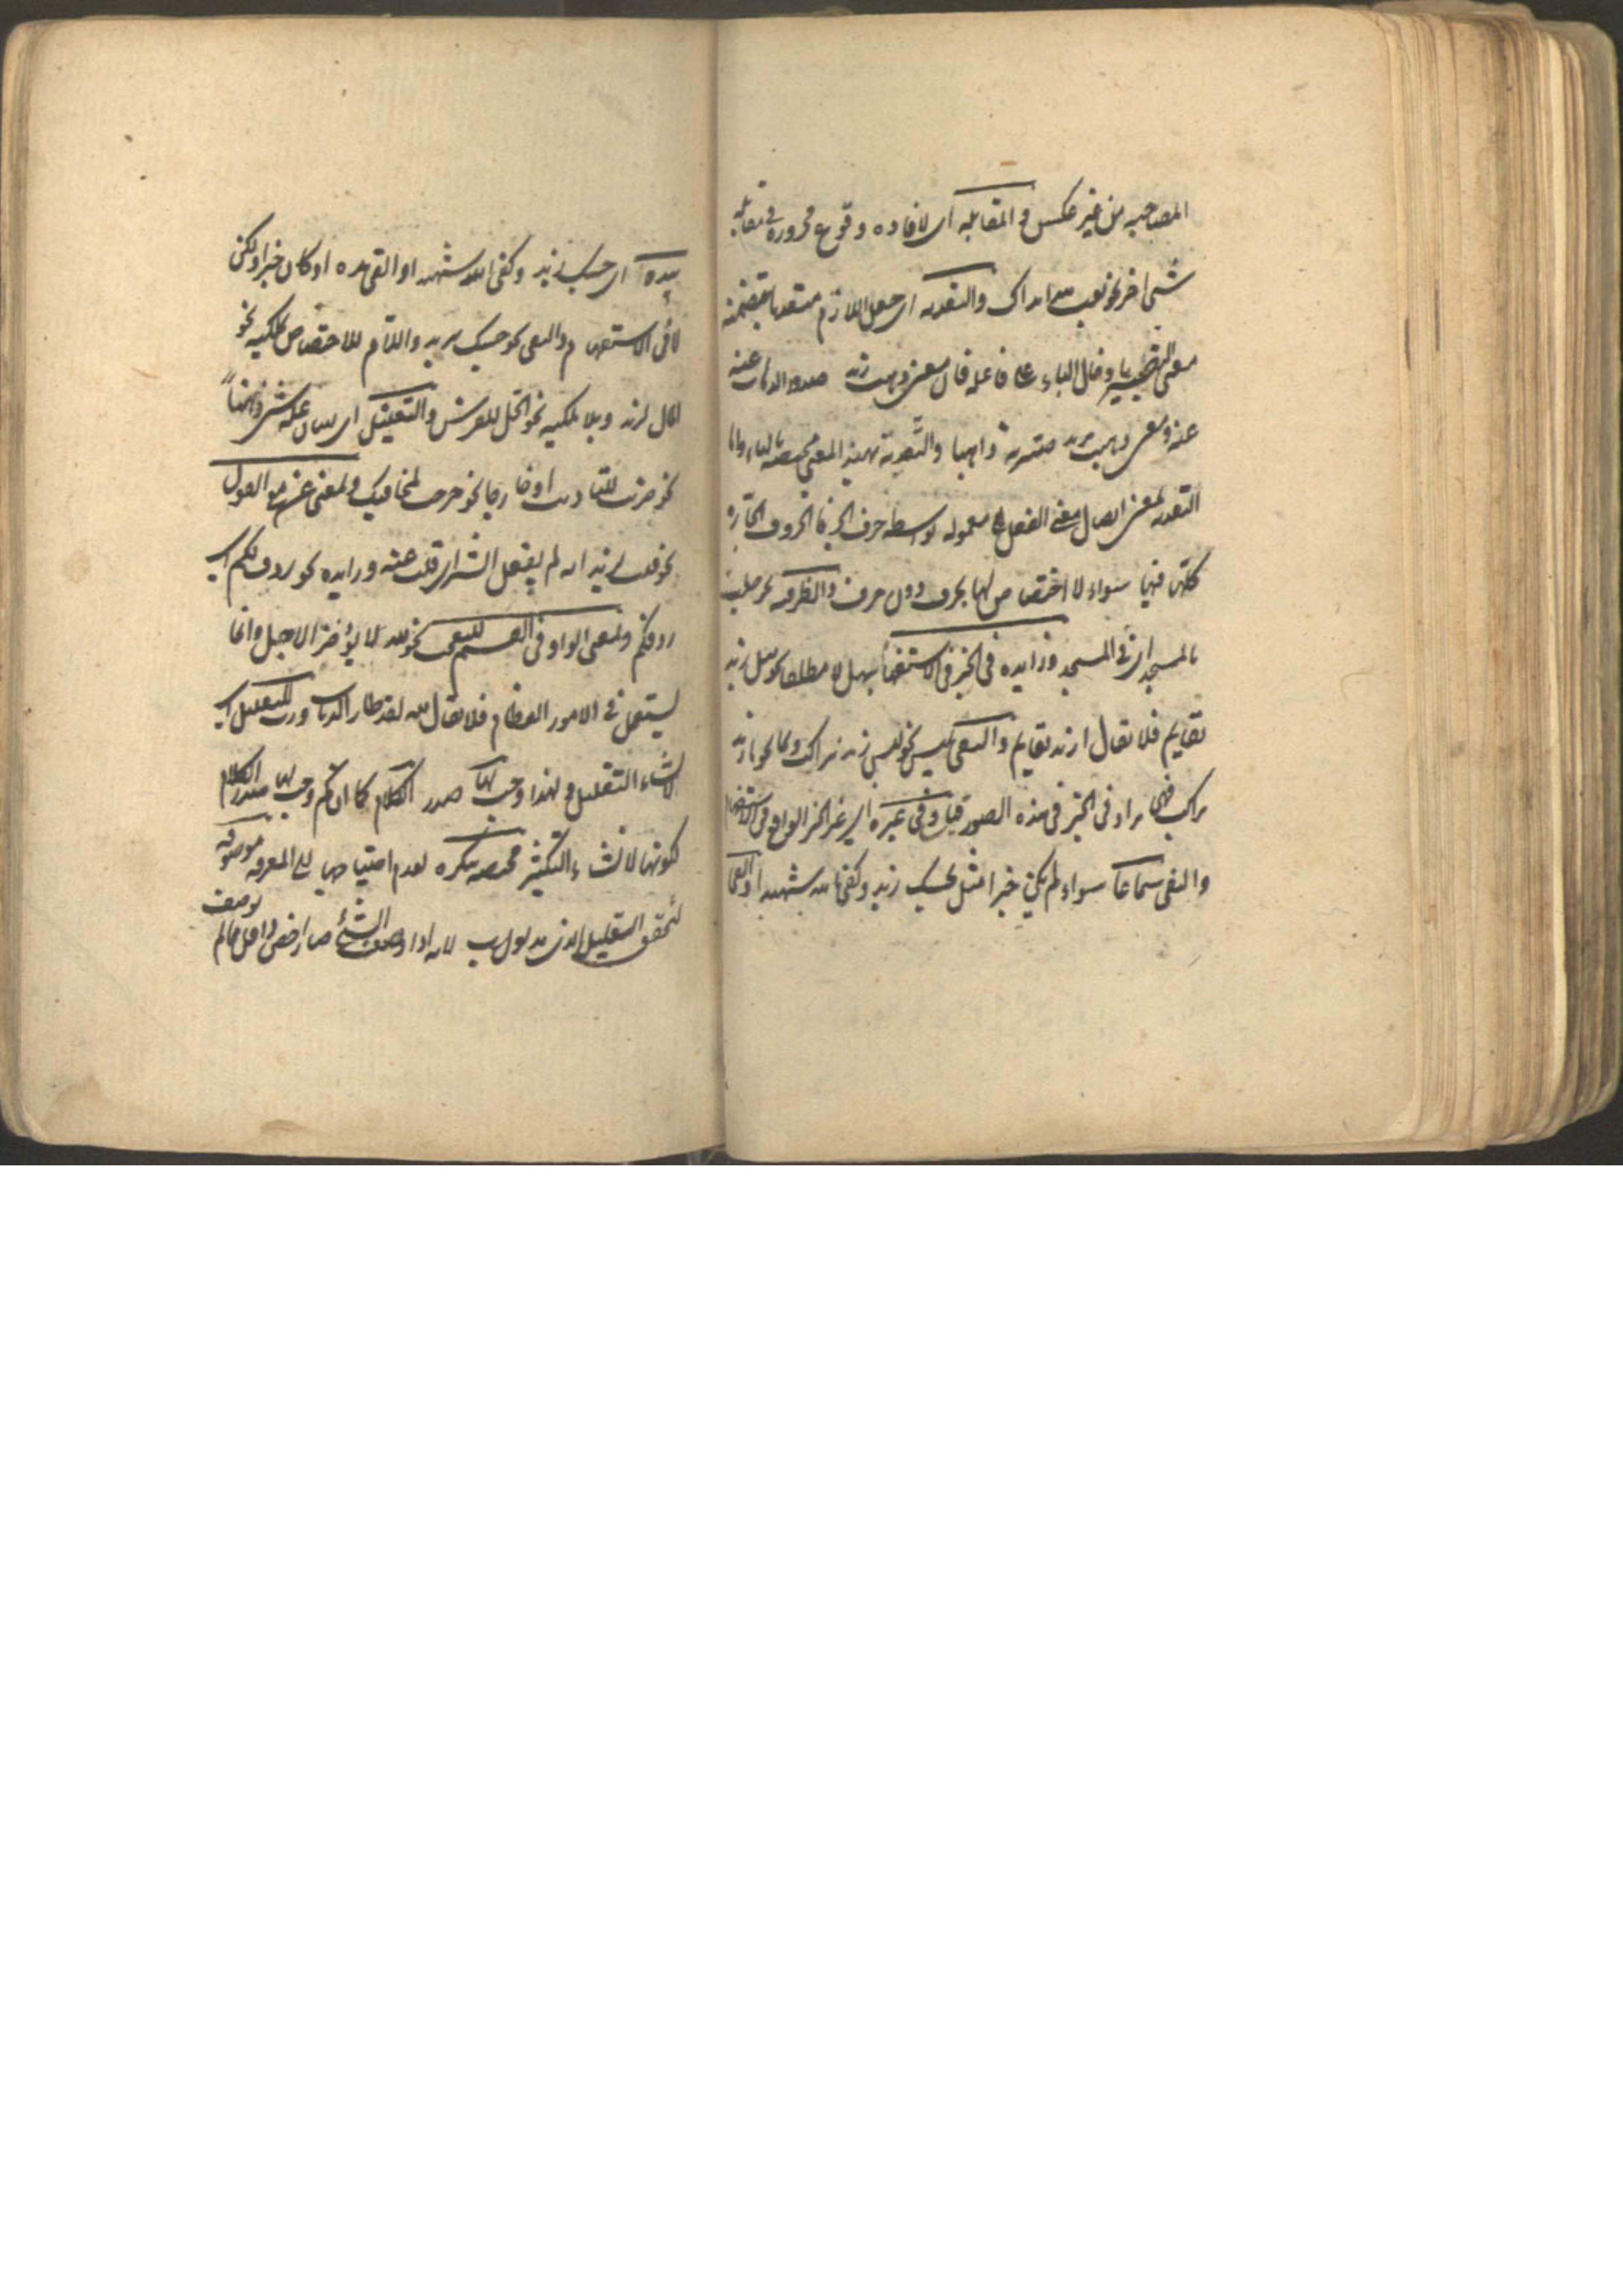 المصاحبه من غير عكس والمقابله اى لافاده وقوع مجروره فى مقابله
شئ اخر نحو بعت هذا بذاك والتعديه اى جعل اللازم متعديا بتضمنه
معنى التصيير بادخال الباء على فاعله فان معنى ذهب زيد صدور الذهاب عنه
عنه ومعنى ذهبت بزيد صيرته ذاهبا والتعديه بهذا المعنى مختصه بالباء واما
التعديه بمعنى ايصال معنى الفعل الى معموله بواسطه حرف الجر فالحروف الجاره
كلها فيها سواء لا اختصاص لها بحرف دون حرف والظرفيه نحو جلست
بالمسجد اى فى المسجد وزايده فى الخبر فى الاستفهام بهل لا مطلقا نحو هل زيد
بقايم فلا يقال ازيد بقايم والنفى بليس نحو ليس زيد براكب وبما نحو ما زيد
براكب فهى تزاد فى الخبر فى هذه الصور قياسا وفى غيره اى غير الخبر الواقع فى الاستفهام
والنفى سماعا سواء لم يكن خبرا مثل بحسبك زيد وكفى بالله شهيدا والقى
بيده اى حسبك زيد وكفى الله شهيدا والقى يده او كان خبرا ولكن
لا فى الاستفهام والنفى نحو حسبك بزيد واللام للاختصاص بملكيه نحو
المال لزيد وبلا ملكيه نحو الجل للفرس والتعليل اى لبيان عله شئ ذهنا
نحو ضربت للتاديب او خارجا نحو خرجت لمخافتك وبمعنى عن مع القول
نحو قلت لزيد انه لم يفعل الشر اى قلت عنه وزايده نحو ردف لكم اى
ردفكم وبمعنى الواو فى القسم للتعجب نحو لله لا يؤخر الاجل وانما
يستعمل فى الامور العظام فلا يقال لله لقد طار الذباب ورب للتقليل اى
لانشاء التقليل ولهذا وجب لها صدر الكلام كما ان كم وجب لها صدر الكلام
لكونها لانشاء التكثير مختصه بنكره لعدم احتياجها الى المعرفه موصوفه
ليتحقق التقليل الذى مدلول رب لانه اذا وصف الشئ صار اخص واقل مما لم يوصف